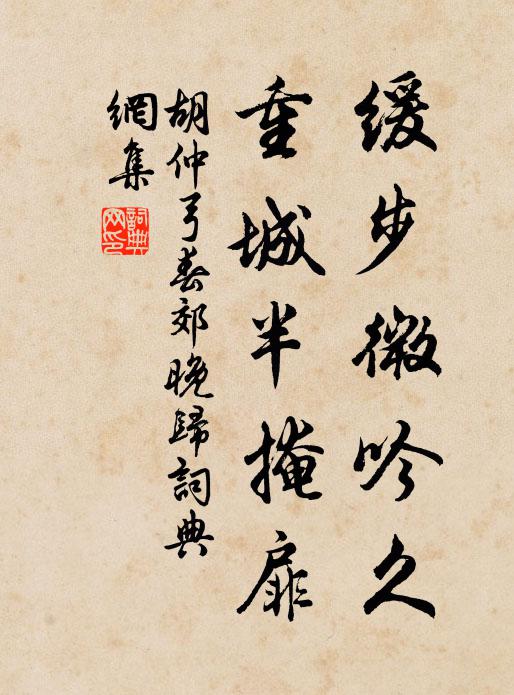 緩步微吟久
重城半掩扉
胡仲弓春郊晚歸詞典
網集
詞典网印